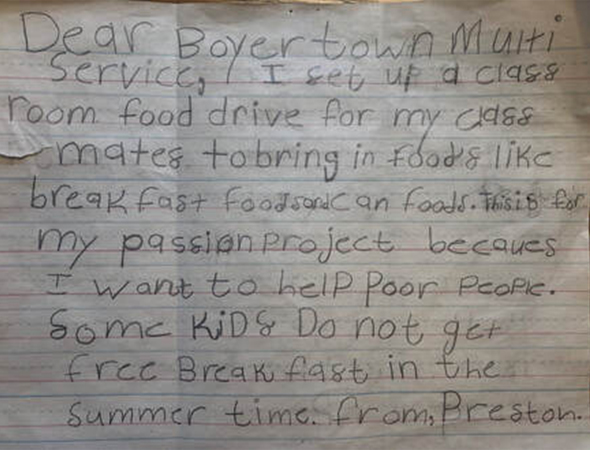 Dear Boyertown Multi
Service, I set up a class
room food drive for my class
mates to bring in foods like
break fast foods and can foods. This is for
my passion project becaues
I want to help Poor PeoPle.
Some KiDs Do not get
free Break fast in the
summer time. from, Preston.